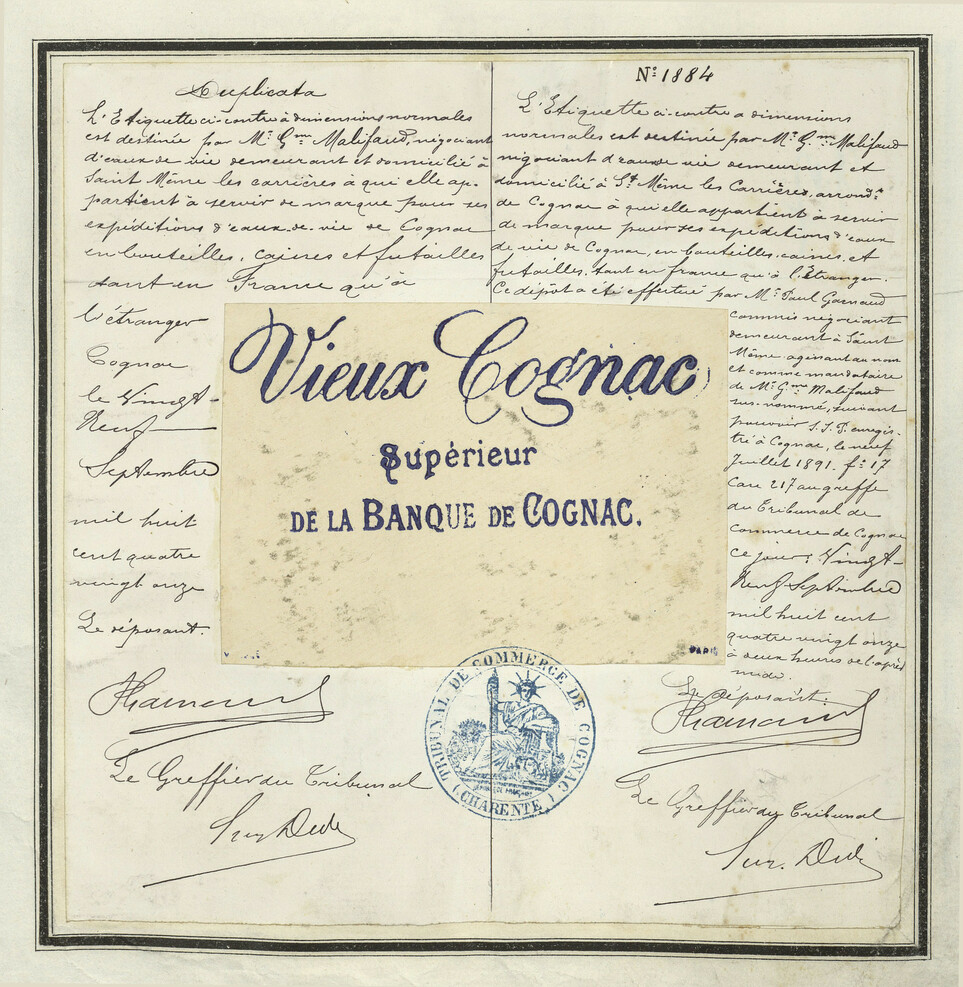 Duplicata
L'Etiquette ci-contre à dimensions normales
est destinée par Mr Gme Malifaud, négociant
d'eaux-de-vie demeurant et domicilié à
Saint Même les carrières à qui elle ap-
partient à servir de marque pour ses
expéditions d'eaux-de-vie de Cognac
en bouteilles, caisses et futailles
tant en France qu'à
l'étranger
Cognac
le Vingt-
Neuf
Septembre
mil huit
cent quatre
vingt onze
Le déposant.
Le Greffier du Tribunal
No 1884
L'Etiquette ci-contre a dimensions
normales est destinée par Mr Gme Malifaud
négociant d'eaux de vie demeurant et
domicilié à St Même les Carrières, arrondt
de Cognac à qui elle appartient à servir
de marque pour ses expéditions d'eaux
de vie de Cognac, en bouteilles, caisses, et
futailles, tant en france qu'à l'étranger.
Ce dépôt a été effectué par Mr Paul Garnaud
commis négociant
demeurant à Saint
Même agissant au nom
et comme mandataire
de Mr Gme Malifaud
sus-nommé, suivant
pouvoir S.S.P. enregis-
tré à Cognac, le neuf
Juillet 1891. fo 17
Case 217 au greffe
du Tribunal de
commerce de Cognac
ce jour Vingt-
Neuf Septembre
mil huit cent
quatre vingt onze
à deux heures de l'après
midi.
Le déposant.
Le Greffier du Tribunal
Vieux Cognac
Supérieur
DE LA BANQUE DE COGNAC.
PARIS
TRIBUNAL DE COMMERCE DE COGNAC
(CHARENTE)